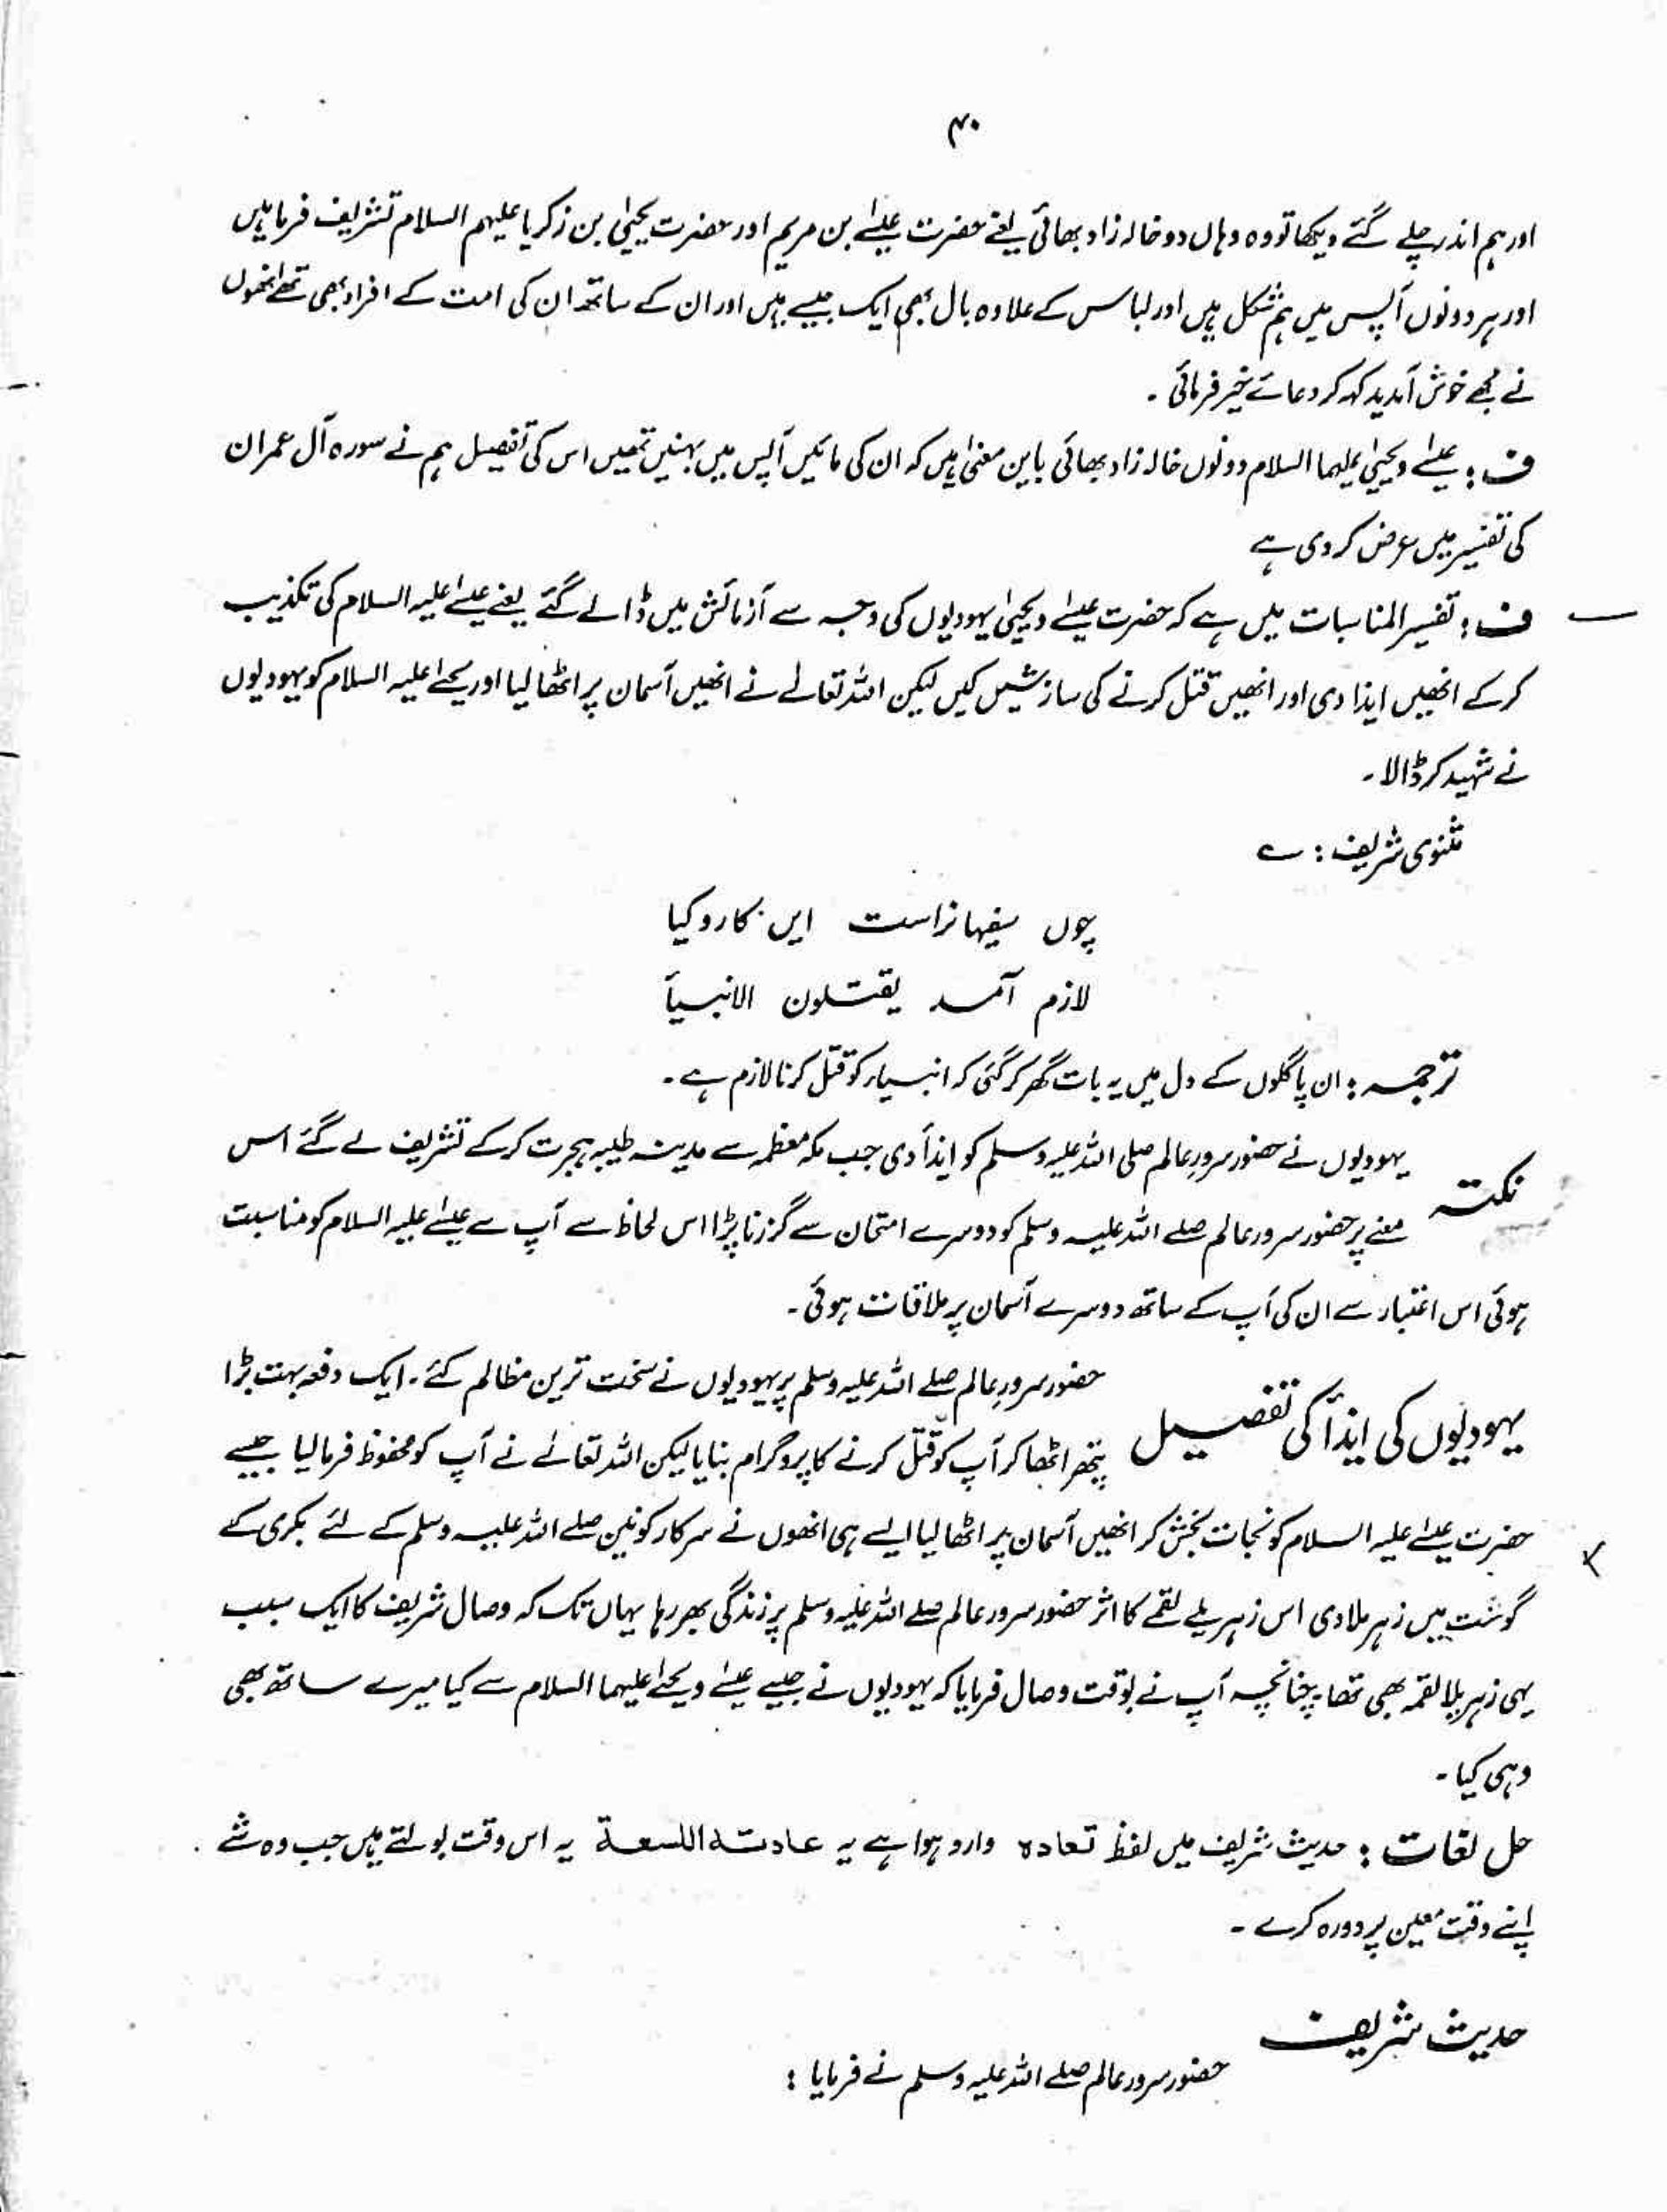 ۴۰
اور ہم اندر چلے گئے دیکھا تو وہ وہاں دو خالہ زاد بھائی یعنے حضرت عیلٰے بن مریم اور حضرت یحییٰ بن زکریا علیہم السلام تشریف فرما ہیں
اور ہر دونوں آپس میں ہم شکل ہیں اور لباس کے علاوہ بال بھی ایک جیسے ہیں اور ان کے ساتھ ان کی امت کے افراد بھی تھے انھوں
نے مجھے خوش آمدید کہہ کر دعائے خیر فرمائی ۔
ف : عیسٰے ویحییٰ علیہما السلام دونوں خالہ زاد بھائی بایں معنیٰ ہیں کہ ان کی مائیں آپس میں بہنیں تھیں اس کی تفصیل ہم نے سورہ آل عمران
کی تفسیر میں عرض کر دی ہے
ف : تفسیر المناسبات میں ہے کہ حضرت عیسٰے ویحییٰ یہودیوں کی وجہ سے آزمائش میں ڈالے گئے یعنے عیسٰے علیہ السلام کی تکذیب
کرکے انھیں ایذا دی اور انھیں قتل کرنے کی سازشیں کیں لیکن اللہ تعالے نے انھیں آسمان پر اٹھا لیا اور یحیےٰ علیہ السلام کو یہودیوں
نے شہید کر ڈالا ۔
مثنوی شریف : ے
چوں سفیہانراست ایں کار و کیا
لازم آمد یقتلون الانبیآ
ترجمہ : ان پاگلوں کے دل میں یہ بات گھر کر گئی کہ انبیاء کو قتل کرنا لازم ہے ۔
نکتہ یہودیوں نے حضور سرورِ عالم صلی اللہ علیہ وسلم کو ایذآ دی جب مکہ معظمہ سے مدینہ طیبہ ہجرت کرکے تشریف لے گئے اس
معنے پر حضور سرور عالم صلے اللہ علیہ وسلم کو دوسرے امتحان سے گزرنا پڑا اس لحاظ سے آپ سے عیسٰے علیہ السلام کو مناسبت
ہوئی اس اعتبار سے ان کی آپ کے ساتھ دوسرے آسمان پر ملاقات ہوئی ۔
یہودیوں کی ایذآ کی تفصیل حضور سرورِ عالم صلے اللہ علیہ وسلم پر یہودیوں نے سخت ترین مظالم کئے ۔ ایک دفعہ بہت بڑا
پتھر اٹھا کر آپ کو قتل کرنے کا پروگرام بنایا لیکن اللہ تعالےٰ نے آپ کو محفوظ فرما لیا جیسے
حضرت عیسٰے علیہ السلام کو نجات بخش کر انھیں آسمان پر اٹھا لیا ایسے ہی انھوں نے سرکار کونین صلے اللہ علیہ وسلم کے لئے بکری کے
گوشت میں زہر ملا دی اس زہریلے لقمے کا اثر حضور سرور عالم صلے اللہ علیہ وسلم پر زندگی بھر رہا یہاں تک کہ وصال شریف کا ایک سبب
یہی زہریلا لقمہ بھی تھا چنانچہ آپ نے بوقت وصال فرمایا کہ یہودیوں نے جیسے عیسٰے ویحیےٰ علیہما السلام سے کیا میرے ساتھ بھی
وہی کیا ۔
حل لغات : حدیث شریف میں لفظ تعاده وارد ہوا ہے یہ عادتہ اللسعة یہ اس وقت بولتے ہیں جب وہ شے
اپنے وقت معین پر دورہ کرے ۔
حدیث شریف
حضور سرور عالم صلے اللہ علیہ وسلم نے فرمایا :